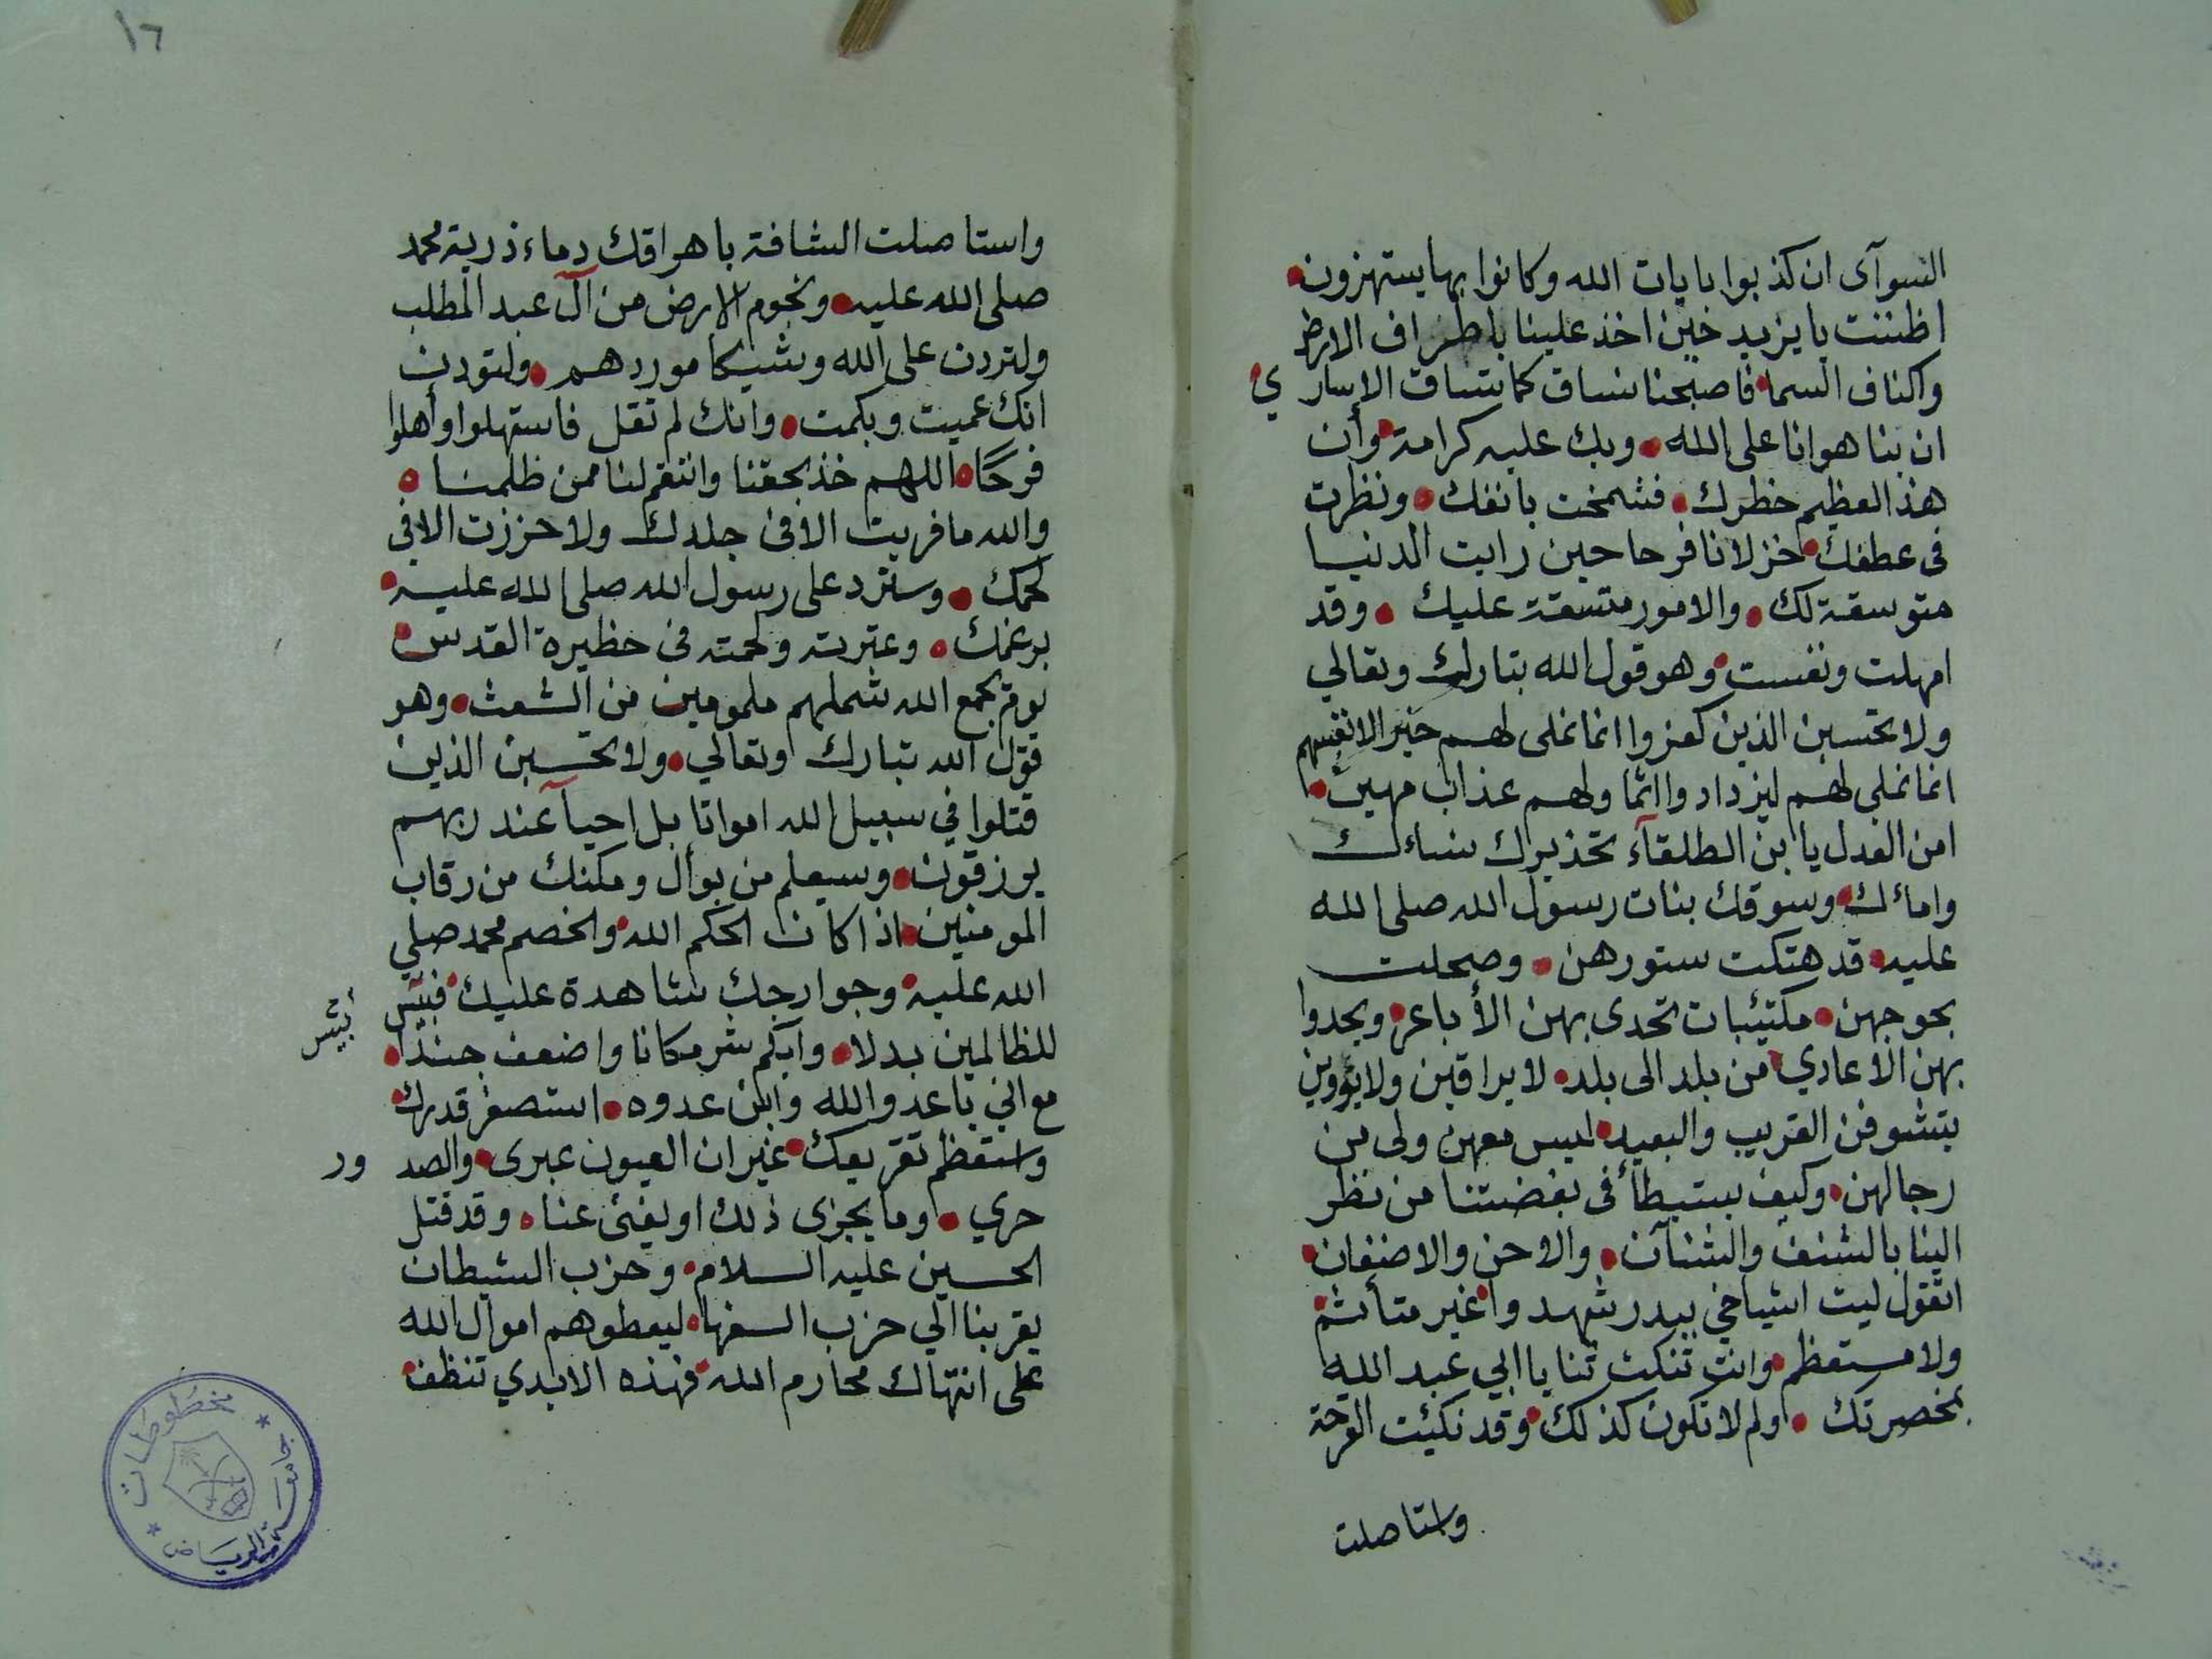 السوآى ان كذبوا بايات الله وكانوا بها يستهزون
اظننت يا يزيد حين اخذ علينا باطراف الارض
واكناف السما فاصبحنا نساق كما تساق الاسارى
ان بنا هوانا على الله وبك عليه كرامة وأن
هذا لعظيم خطرك فشمخت بانفك ونظرت
فى عطفك جذلانا فرحا حين رايت الدنيا
متوسقة لك والامور متسقة عليك وقد
امهلت ونفست وهو قول الله تبارك وتعالي
ولا يحسبن الذين كفروا انما نملى لهم خير لانفسهم
انما نملى لهم ليزدادوا اثما ولهم عذاب مهين
امن العدل يا ابن الطلقآء تخذيرك نساءك
واماءك وسوقك بنات رسول الله صلى الله
عليه قد هتكت ستورهن وصحلت
بحوجهن مكتئبات تحدى بهن الأباعر ويحدوا
بهن الاعادي من بلد الى بلد لا يراقبن ولا يؤوين
يتشوفن القريب والبعيد ليس معهن ولى من
رجالهن وكيف يستبطأ فى بغضتنا من نظر
الينا بالشنف والشنآن والاحن والاضغان
اتقول ليت اشياخي ببدر شهدوا غير متأثم
ولا مستعظم وانت تنكث ثنايا ابي عبد الله
بمخصرتك ولم لا تكون كذلك وقد نكئت القرحة
واستاصلت
١٦
واستاصلت الشافة باهراقك دماء ذرية محمد
صلى الله عليه ونجوم الارض من آل عبد المطلب
ولتردن على الله وشيكا موردهم ولتودن
انك عميت وبكمت وانك لم تقل فاستهلوا وأهلوا
فرحًا اللهم خذ بحقنا وانتقم لنا ممن ظلمنا
والله ما فريت الا فى جلدك ولا حززت الا فى
لحمك وسترد على رسول الله صلى الله عليه
برغمك وعترته ولحمته فى حظيرة القدس
يوم يجمع الله شملهم ملمومين من الشعث وهو
قول الله تبارك وتعالي ولا تحسبن الذين
قتلوا في سبيل الله امواتا بل احيآ عند ربهم
يرزقون وسيعلم من بوأك ومكنك من رقاب
المومنين اذا كان الحكم الله والخصم محمد صلي
الله عليه وجوارحك شاهدة عليك فبئس
بئس
للظالمين بدلا وآيكم شر مكانا واضعف جندا
مع اني يا عدو الله وابن عدوه استصغر قدرك
واستعظم تقريعك غير ان العيون عبرى والصدور
حري وما يجزى ذلك او يغنى عنا وقد قتل
الحسين عليه السلام وحزب الشيطان
يقربنا الي حزب السفها ليعطوهم اموال الله
على انتهاك محارم الله فهذه الايدي تنظف
مخطوطات
جامعة الرياض